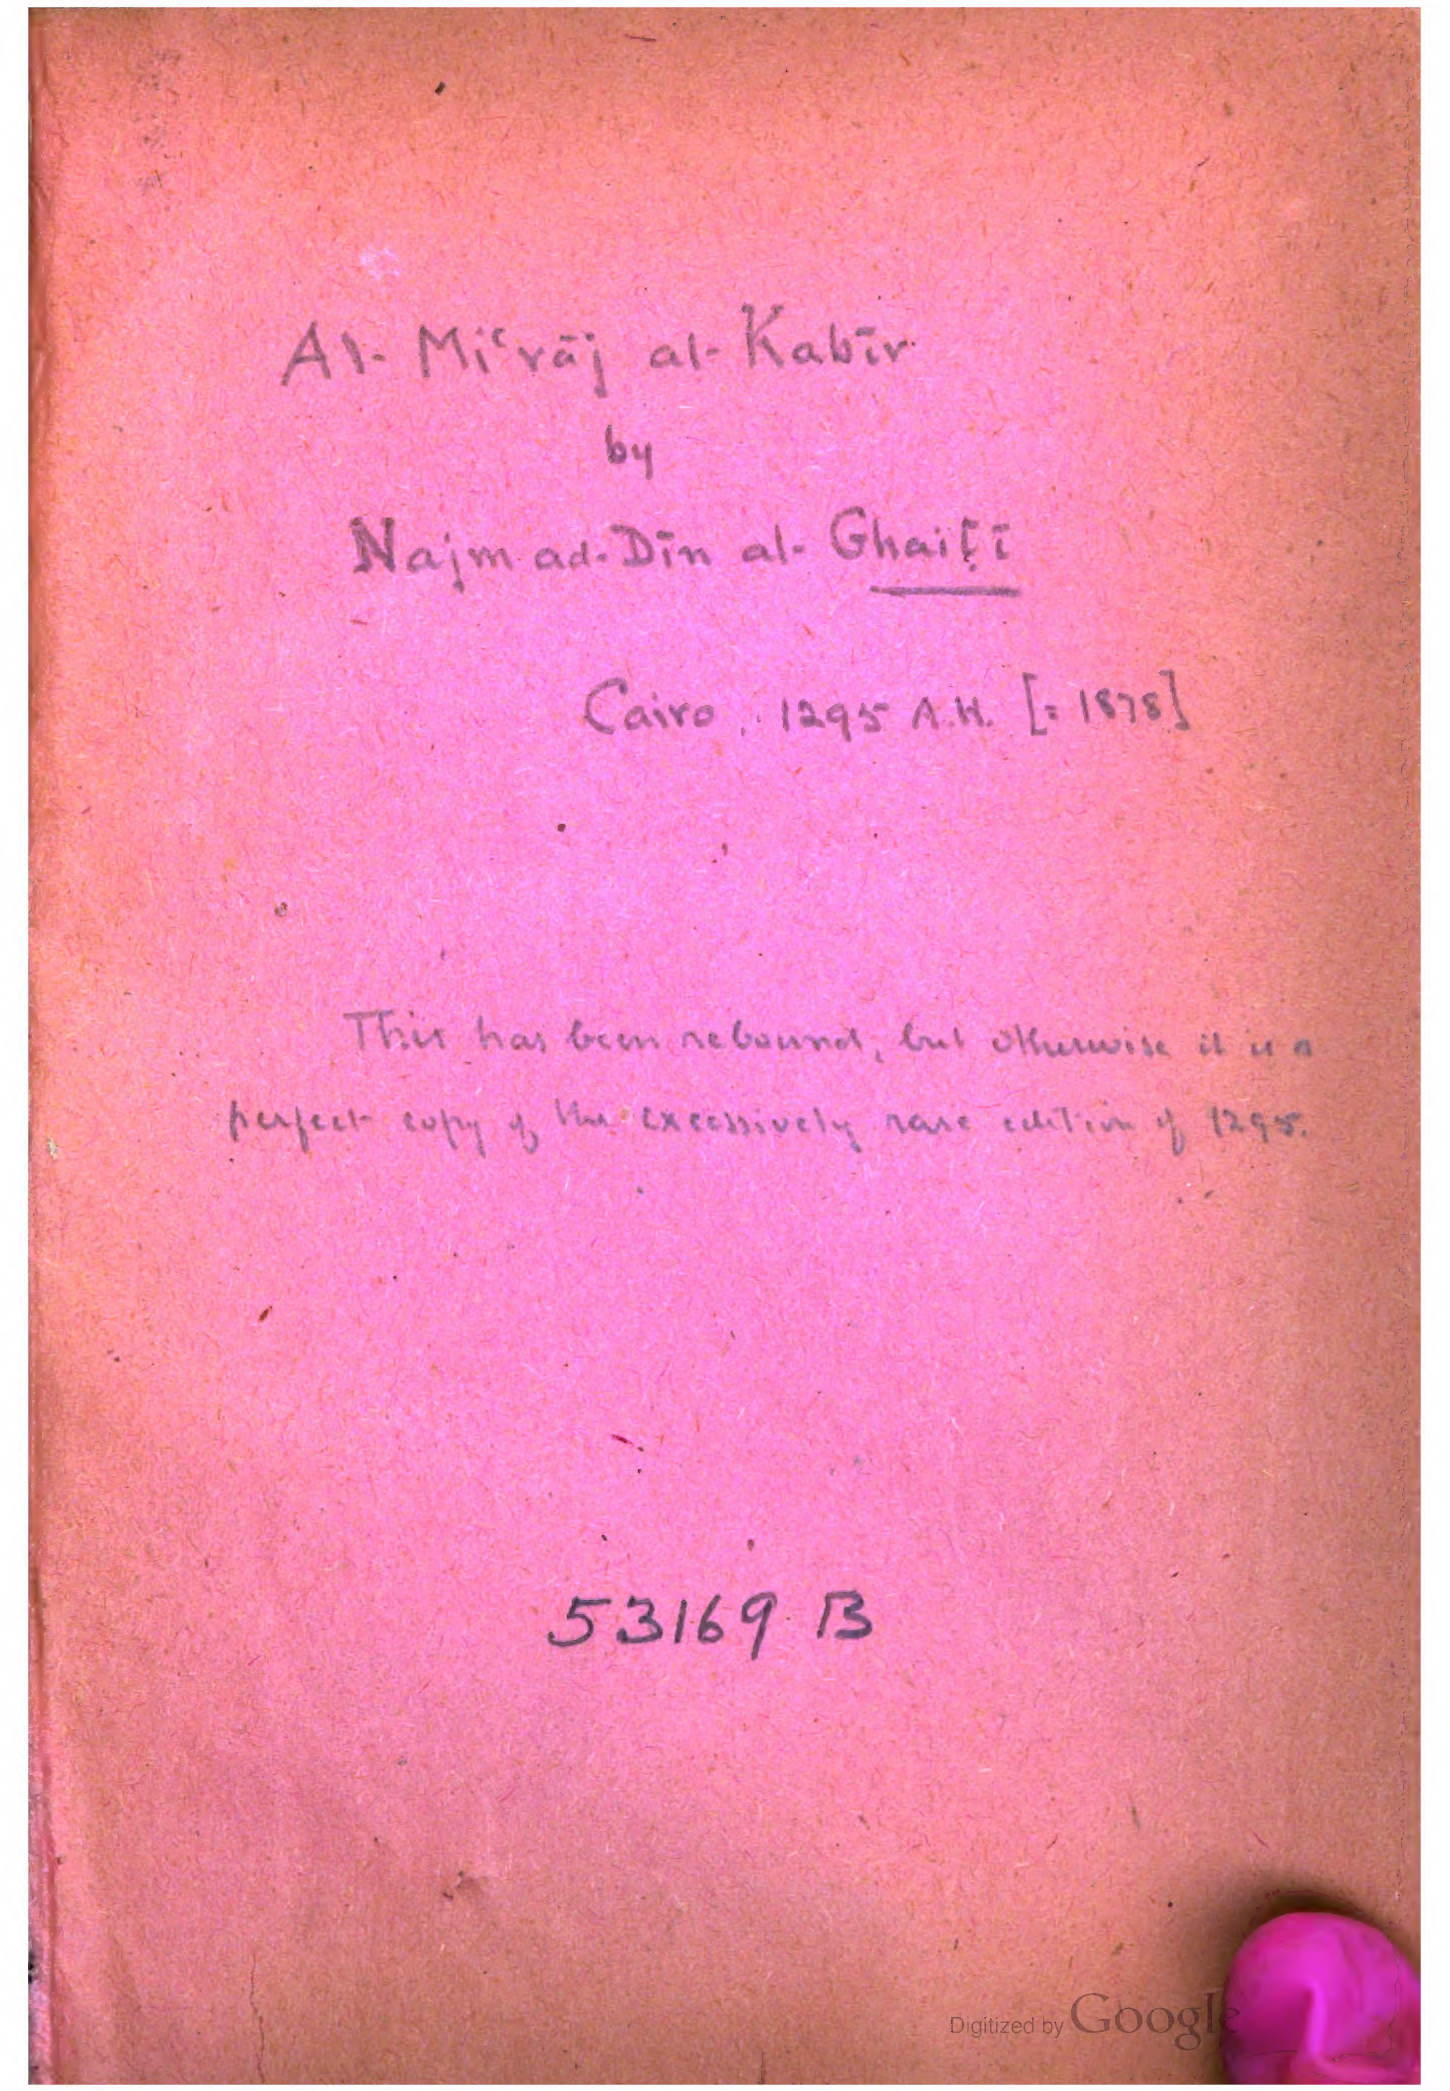 Al-Mi‘rāj al-Kabīr
by
Najm ad-Dīn al-Ghaiṭī
Cairo, 1295 A.H. [= 1878]
This has been rebound, but otherwise it is a
perfect copy of the excessively rare edition of 1295.
53169 B
Digitized by Google